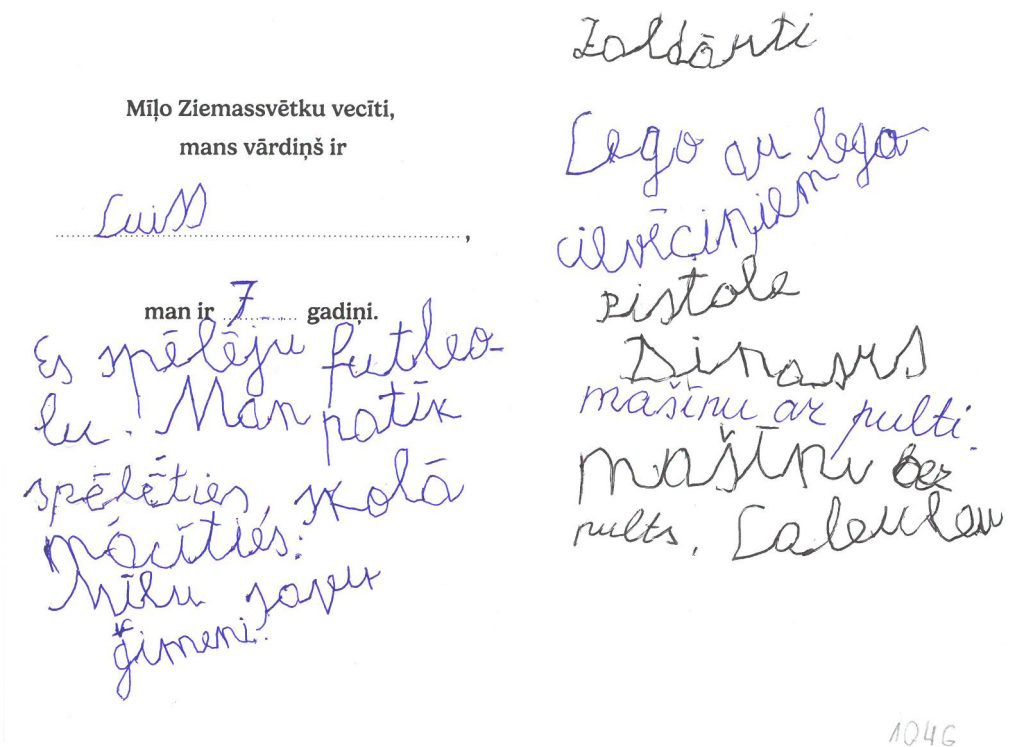 Mīļo Ziemassvētku vecīti,
mans vārdiņš ir
Luiss,
man ir 7 gadiņi.
Es spēlēju futbo-
lu. Man patīk
spēlēties, skolā
mācīties.
Mīlu savu
ģimeni.
Zaldārti
Lego ar lego
cilvēciņiem
pistole
Dinazrs
mašīnu ar pulti.
mašīnu bez
pults. Labubu
1046